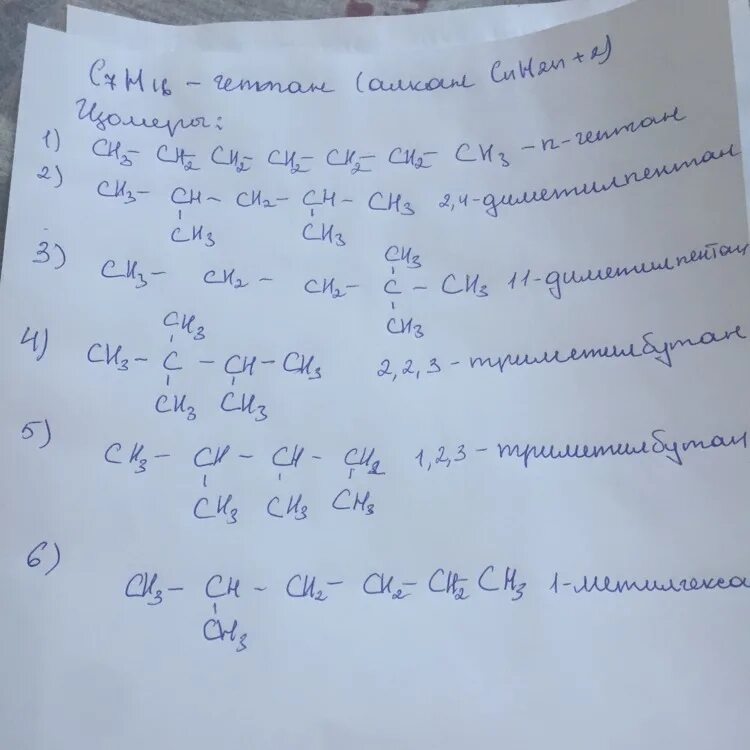 C7H16 – гептан (алкан CnH2n+2)
Изомеры:
1) CH3– CH2– CH2– CH2– CH2– CH2– CH3 – n-гептан
2) CH3– CH– CH2– CH– CH3 2,4-диметилпентан
CH3 CH3
CH3
3) CH3– CH2– CH2– C– CH3 11-диметилпентан
CH3
CH3
4) CH3– C – CH– CH3 2,2,3-триметилбутан
CH3 CH3
5) CH3– CH – CH – CH2 1,2,3-триметилбутан
CH3 CH3 CH3
6) CH3– CH – CH2– CH2– CH2 CH3 1-метилгекса
CH3